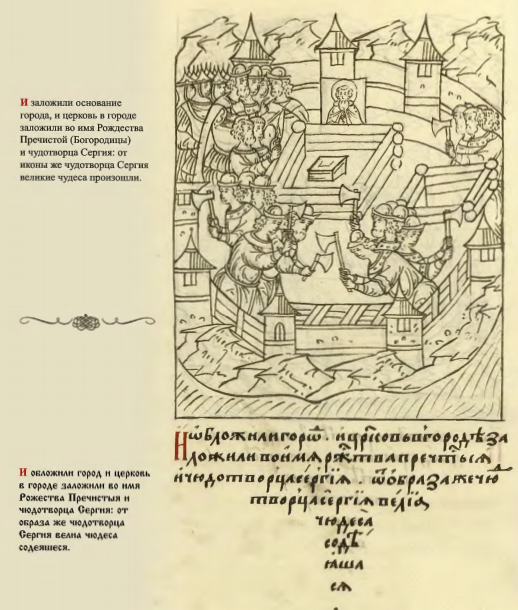 И заложили основание
города, и церковь в городе
заложили во имя Рождества
Пречистой (Богородицы)
и чудотворца Сергия: от
иконы же чудотворца Сергия
великие чудеса произошли.
И обложили город и церковь
в городе заложили во имя
Рожества Пречистыя и
чюдотворца Сергия: от
образа же чюдотворца
Сергия велиа чюдеса
содеяшеся.
И ѡбложили горѡⷣ. и црⷦ҇овь в городѣ за
ложили во имѧ рⷤ҇тва прⷱ҇тыѧ
и чюдотворца сергїѧ. ѿ ѡбраза же чюⷣ
творца сергїѧ велїѧ
чюдеса
содѣ
ꙗша
сѧ